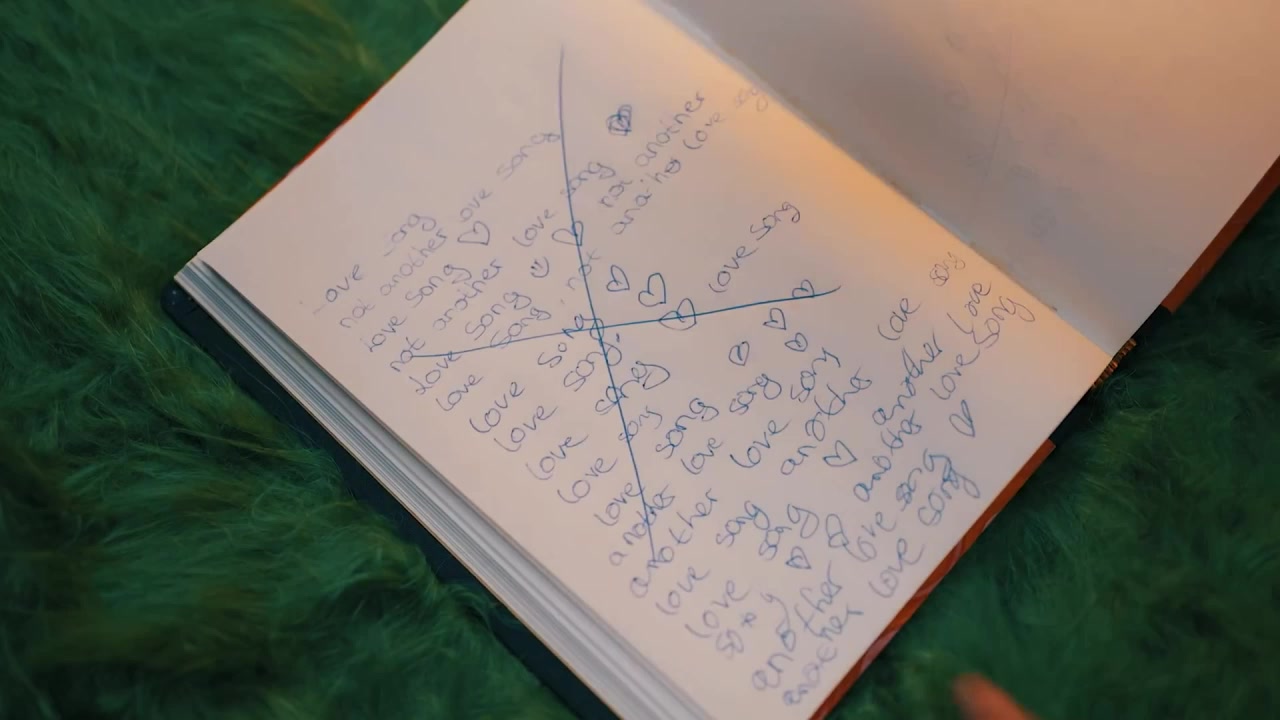 love song
not another love song
love song
not another love song
love song not another
love song not another love song
love song
love song
love song love song
love song
love song
another love song
another love song
love song another
love song
song another love song
another another love
another love song love song
another love song